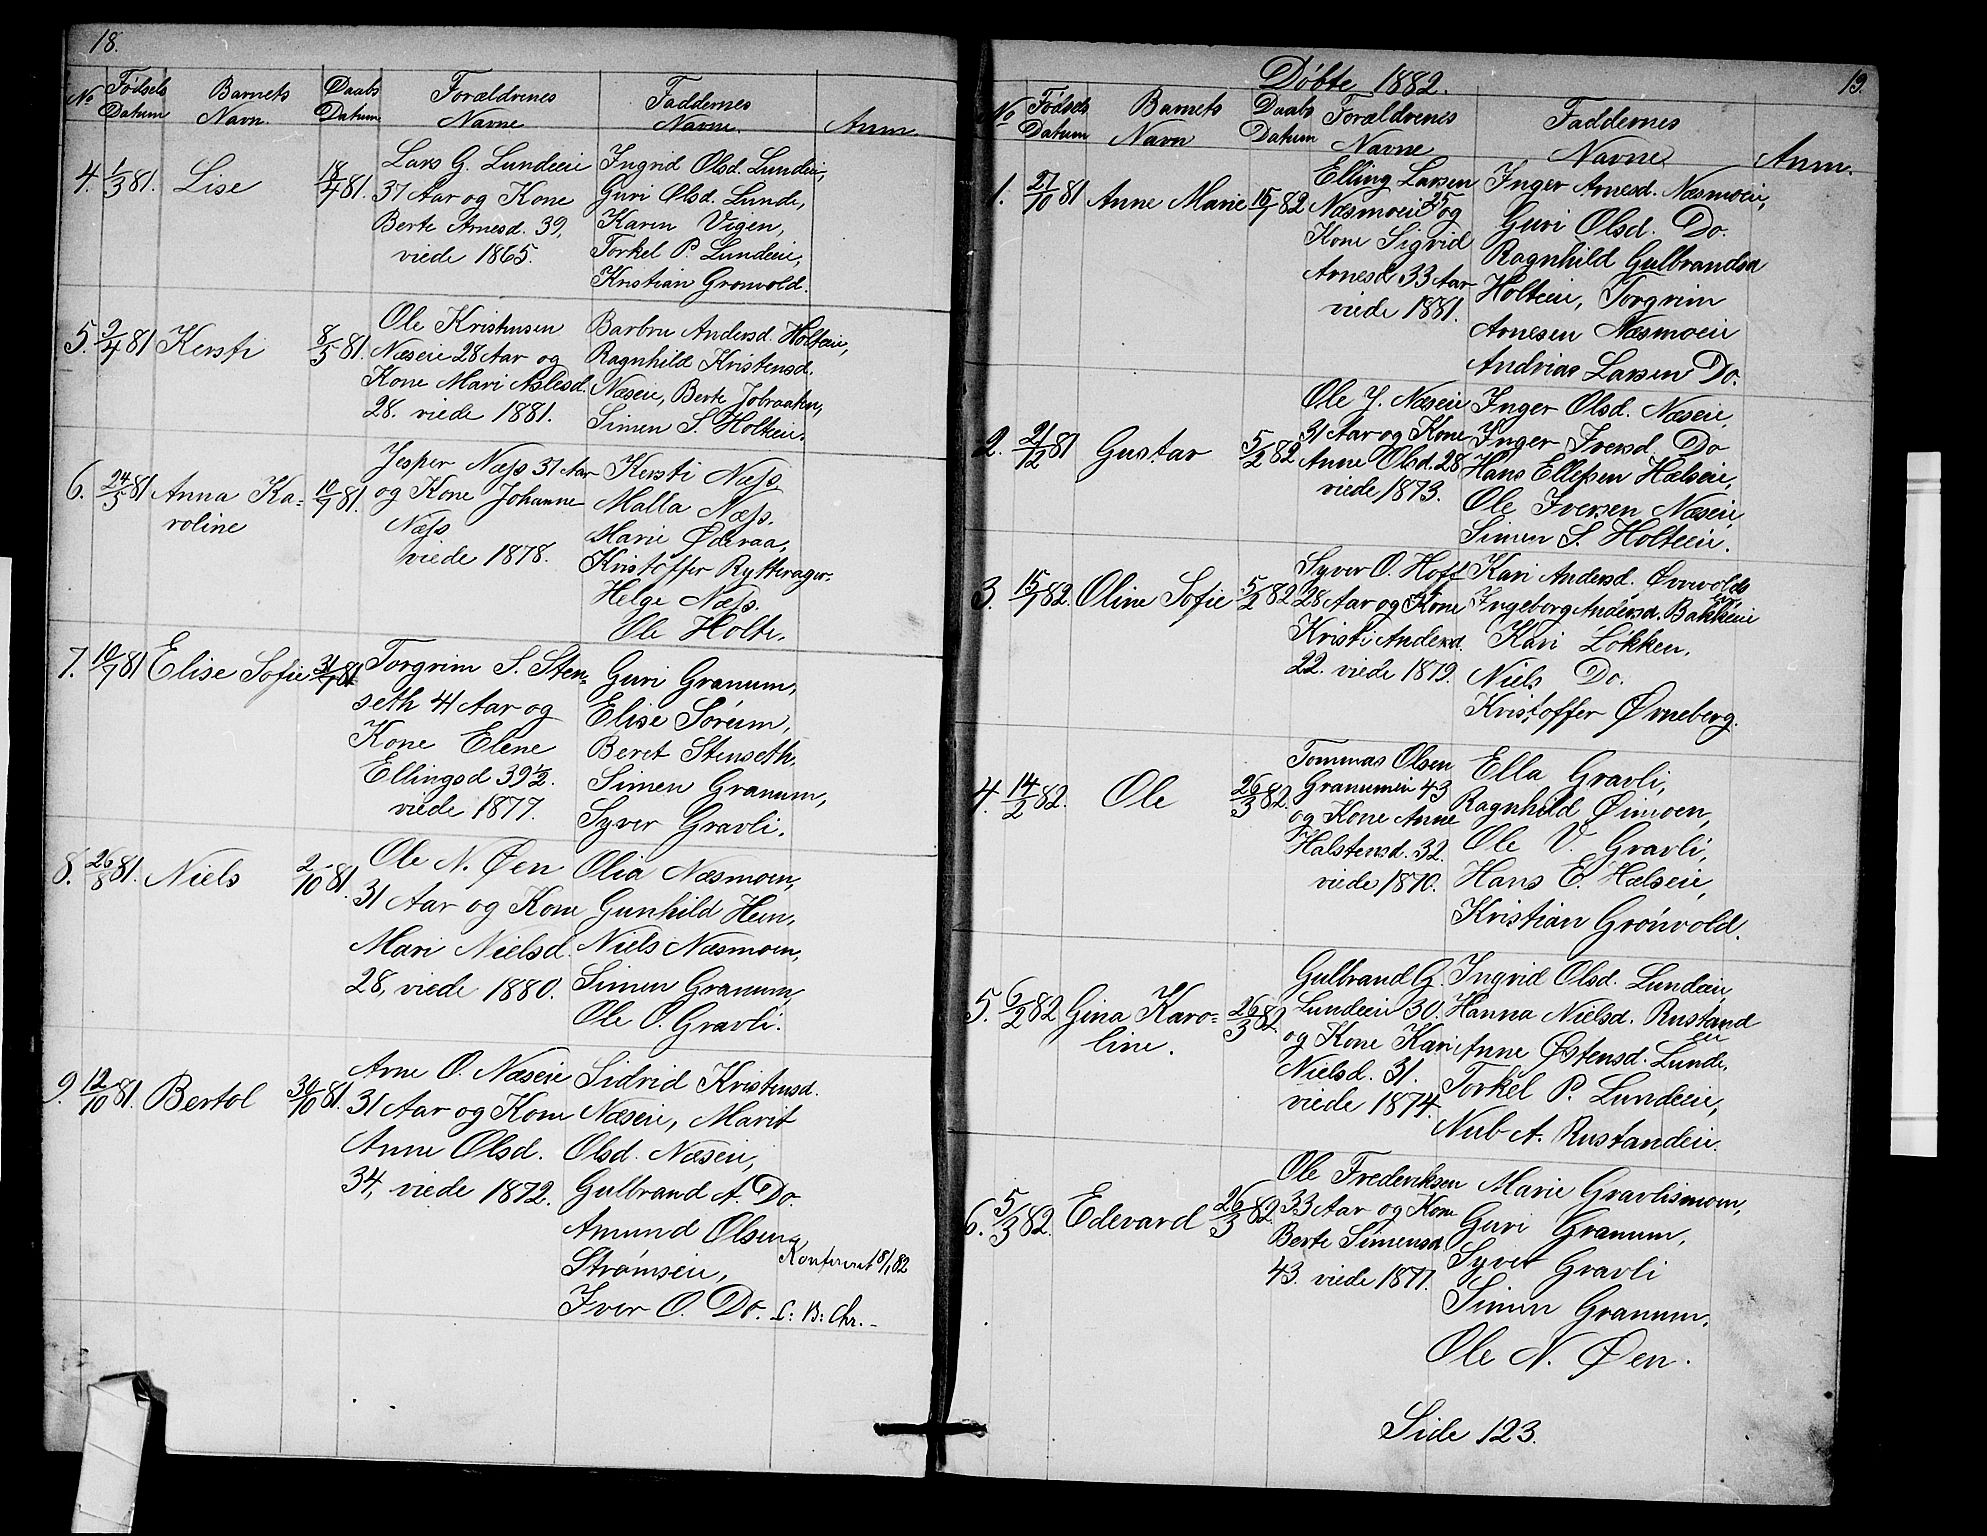 18.
No Fødsels Datum Barnets Navn. Daabs Datum Forældrenes Navne Faddernes Navne. Anm
4. 1/3 81. Lise 18/4 81.
Lars G. Lundeeie
37 Aar og Kone
Berte Arnesd. 39,
viede 1865.
Ingrid Olsd. Lundeie,
Guri Olsd. Lunde,
Karen Vigen,
Torkel P. Lundeeie,
Kristian Grønvold.
5. 9/4 81 Kersti 8/5 81.
Ole Kristensen
Næseie 28 Aar og
Kone Mari Aslesd.
28. viede 1881.
Barbru Andersd. Holteie,
Ragnhild Kristensd.
Næseie, Berte Jobraaten,
Simen S. Holteie.
6. 24/5 81 Anna Ka-
roline 10/7 81.
Jesper Næss 31 Aar
og Kone Johanne
Næss
viede 1878.
Kersti Næss
Malla Næss.
Marie Øderaa,
Kristoffer Rytterager.
Helge Næss.
Ole Holte.
7. 10/7 81 Elise Sofie 31/7 81
Torgrim S. Sten-
seth 41 Aar og
Kone Elene
Ellingsd 39 1/2.
viede 1877.
Guri Granum,
Elise Sørum,
Beret Stenseth,
Simen Granum,
Syver Gravli.
8. 26/8 81. Niels 2/10 81.
Ole N. Øen
31 Aar og Kone
Mari Nielsd.
28, viede 1880.
Olia Næsmoen,
Gunhild Heen,
Niels Næsmoen,
Simen Granum,
Ole O. Gravli.
9. 12/10 81. Bertol 30/10 81.
Arne O. Næseie
31 Aar og Kone
Anne Olsd.
34, viede 1872.
Sidrid Kristensd.
Næseie, Marit
Olsd. Næseie,
Gulbrand A. Do.
Amund Olsen
Strømseie,
Iver O. Do.
Konfereret 18/1 82
L: B: Chr.-
19.
Døbte 1882.
No Fødsels Datum Barnets Navn Daabs Datum Forældrenes Navne Faddernes Navne Anm.
1. 27/10 81 Anne Marie 15/1 82
Elling Larsen
Næsmoeie 25 og
Kone Sigrid
Arnesd 33 Aar
viede 1881.
Inger Arnesd. Næsmoeie,
Guri Olsd. Do.
Ragnhild Gulbrandsd
Holteeie, Torgrim
Arnesen Næsmoeie
Andrias Larsen Do.
2. 21/12 81 Gustav 5/2 82
Ole J. Næseie
31 Aar og Kone
Anne Olsd. 28
viede 1873.
Inger Olsd. Næseie,
Inger Iversd. Do
Hans Ellefsen Hælseie,
Ole Iversen Næseie,
Simen S. Holteeie.
3. 15/1 82. Oline Sofie 5/2 82
Syver O. Hoff
28 Aar og Kone
Kristi Andersd.
22. viede 1879.
Kari Andersd. Ørnvolds
eie
Ingeborg Andersd. Bakkeeie
Kari Løkken,
Niels Do.
Kristoffer Ørneberg.
4. 14/2 82. Ole 26/3 82.
Tommas Olsen
Granumeie 43
og Kone Anne
Halstensd. 32.
viede 1870.
Ella Gravli,
Ragnhild Øimoen,
Ole V. Gravli,
Hans E. Hælseie,
Kristian Grønvold.
5. 6/2 82 Gina Karo-
line. 26/3 82
Gulbrand G.
Lundeeie 30.
og Kone Kari
Nielsd. 31.
viede 1874.
Ingrid Olsd. Lundeie,
Hanna Nielsd. Rustand
eie
Anne Østensd. Lunde,
Torkel P. Lundeeie,
Nub A. Rustandeie.
6. 5/3 82. Edevard 26/3 82.
Ole Frederiksen
33 Aar og Kone
Berte Simensd.
43. viede 1877.
Marie Gravlismoen,
Guri Granum,
Syver Gravli
Simen Granum,
Ole N. Øen.
Side 123.